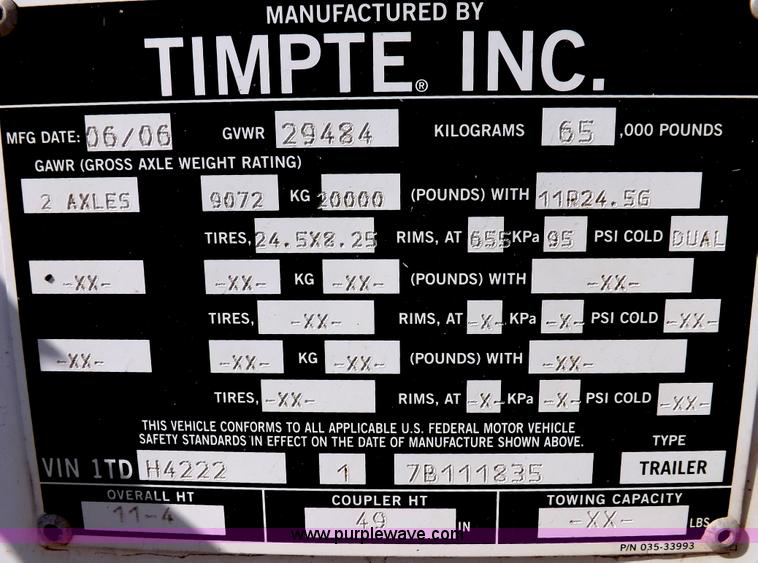 MANUFACTURED BY
TIMPTE® INC.
MFG DATE: 06/06 GVWR 29484 KILOGRAMS 65 ,000 POUNDS
GAWR (GROSS AXLE WEIGHT RATING)
2 AXLES 9072 KG 20000 (POUNDS) WITH 11R24.5G
TIRES, 24.5X8.25 RIMS, AT 655 KPa 95 PSI COLD DUAL
-XX- -XX- KG -XX- (POUNDS) WITH -XX-
TIRES, -XX- RIMS, AT -X- KPa -X- PSI COLD -XX-
-XX- -XX- KG -XX- (POUNDS) WITH -XX-
TIRES, -XX- RIMS, AT -X- KPa -X- PSI COLD -XX-
THIS VEHICLE CONFORMS TO ALL APPLICABLE U.S. FEDERAL MOTOR VEHICLE
SAFETY STANDARDS IN EFFECT ON THE DATE OF MANUFACTURE SHOWN ABOVE.
TYPE
VIN 1TD H4222 1 7B111835 TRAILER
OVERALL HT COUPLER HT TOWING CAPACITY
11-4 49 IN -XX- LBS
www.purplewave.com
P/N 035-33993